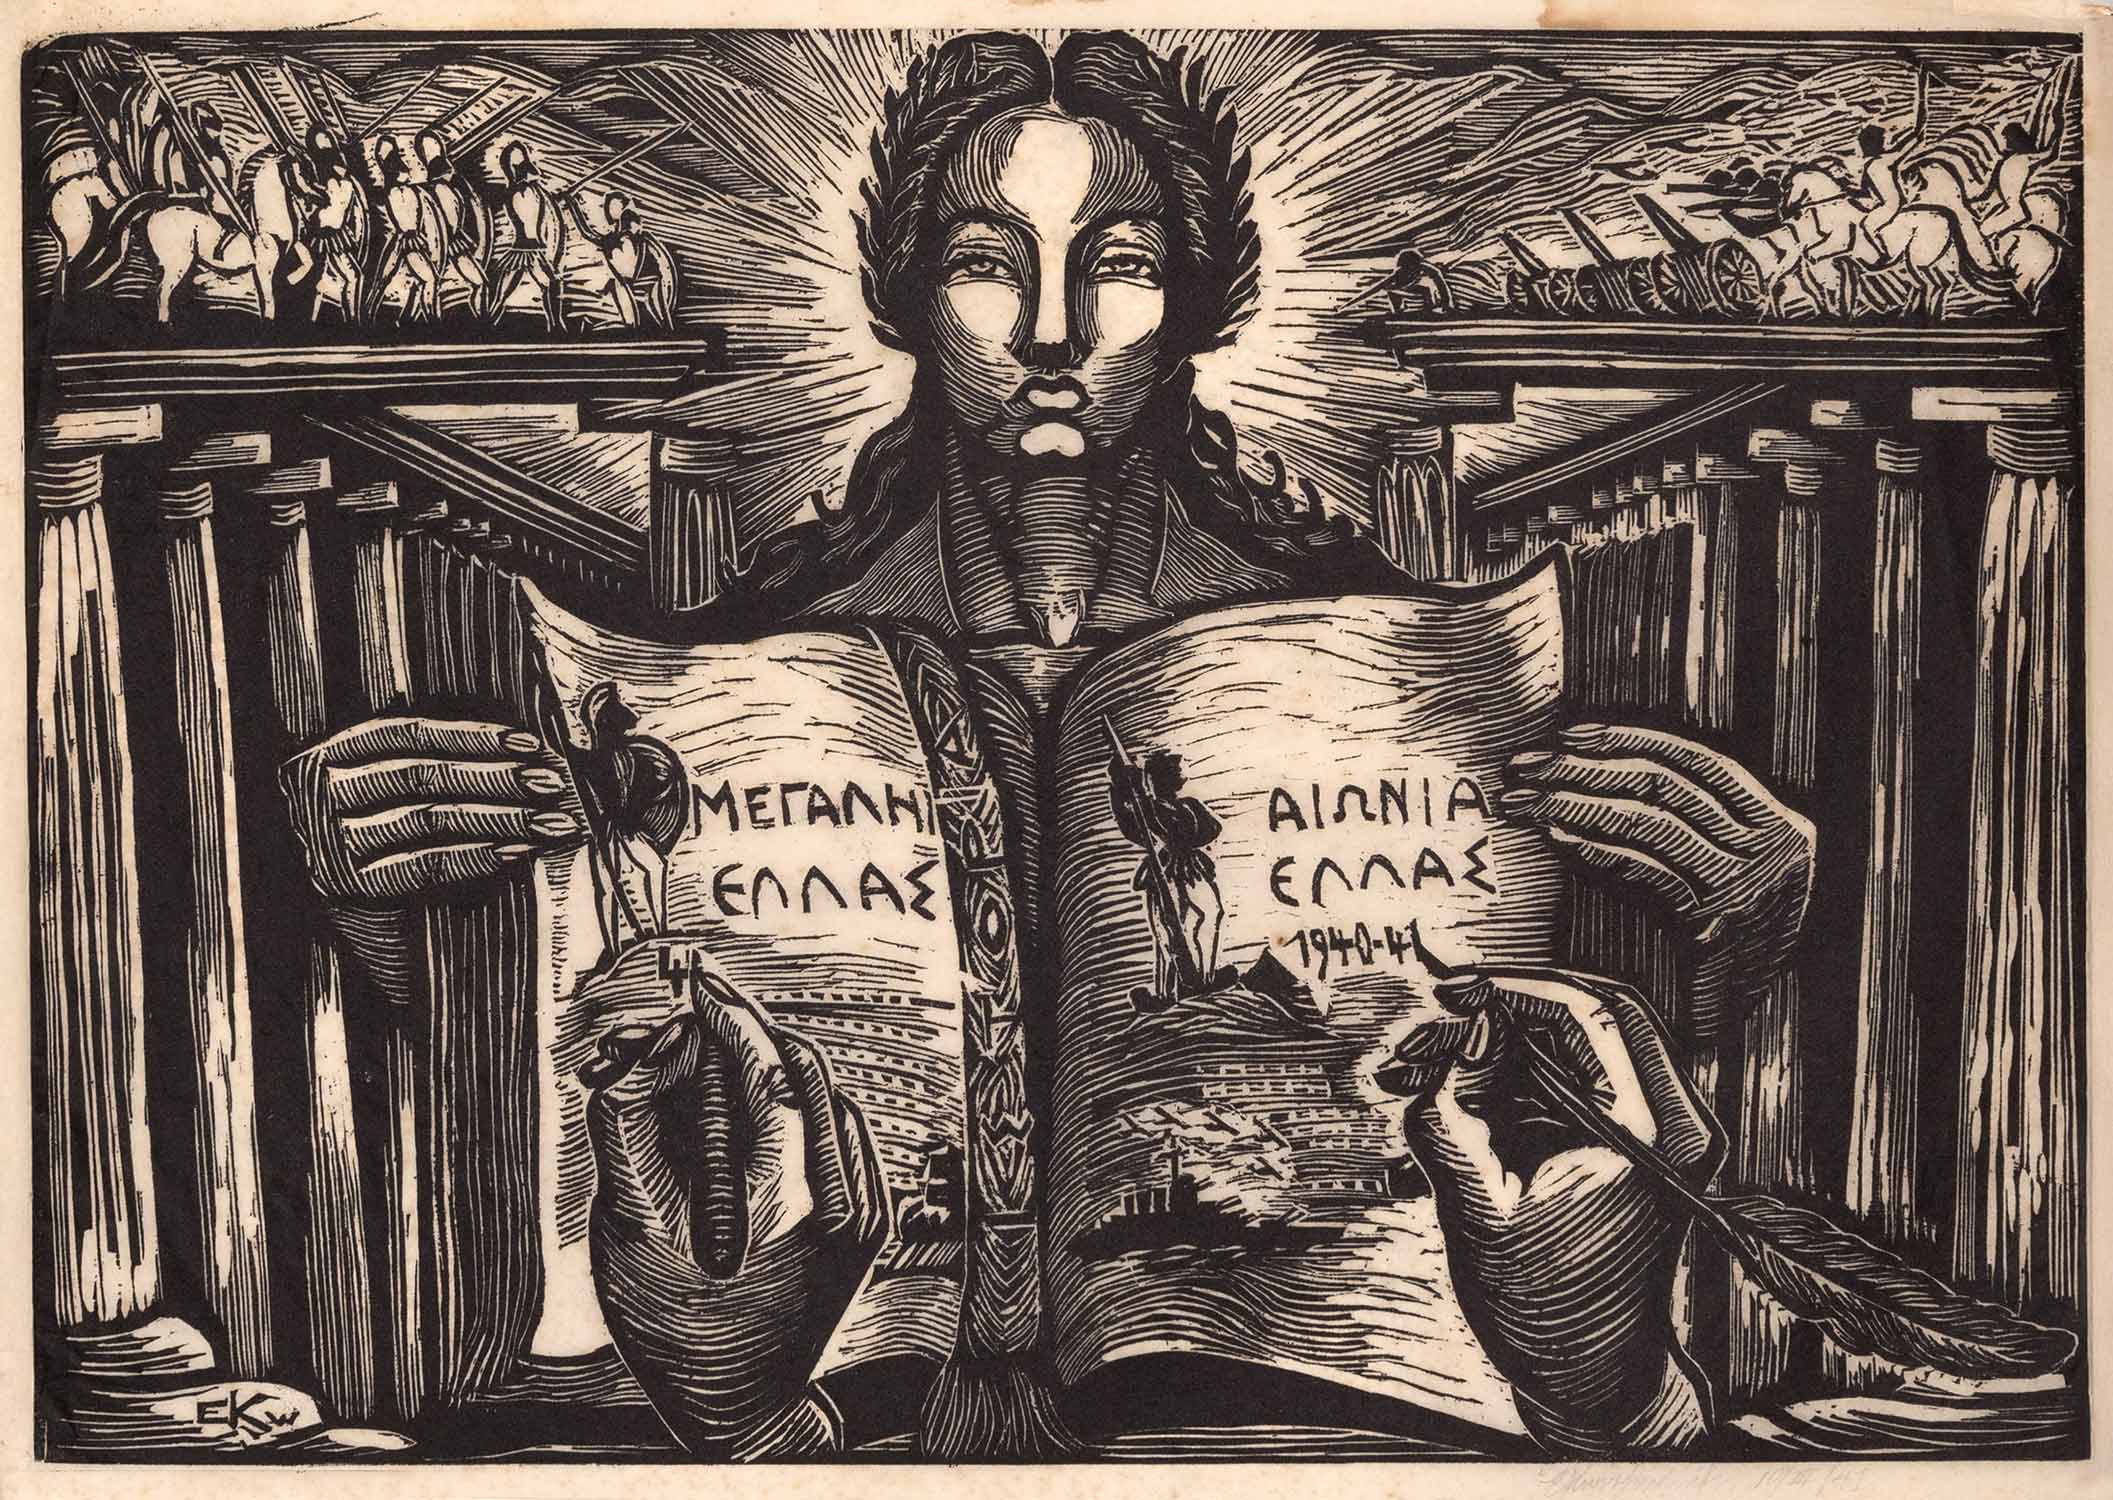 ΜΕΓΑΛΗ
ΕΛΛΑΣ
ΑΙΩΝΙΑ
ΕΛΛΑΣ
1940-41
EKW